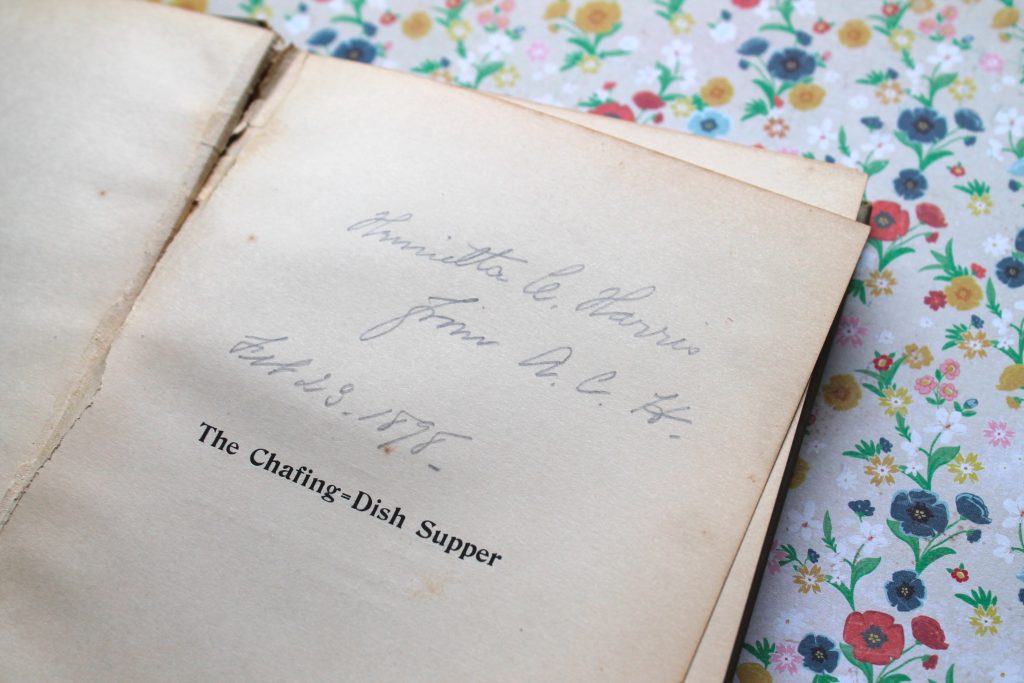 Henrietta C. Harris
from A. C. H.
Feb 23. 1898.
The Chafing=Dish Supper